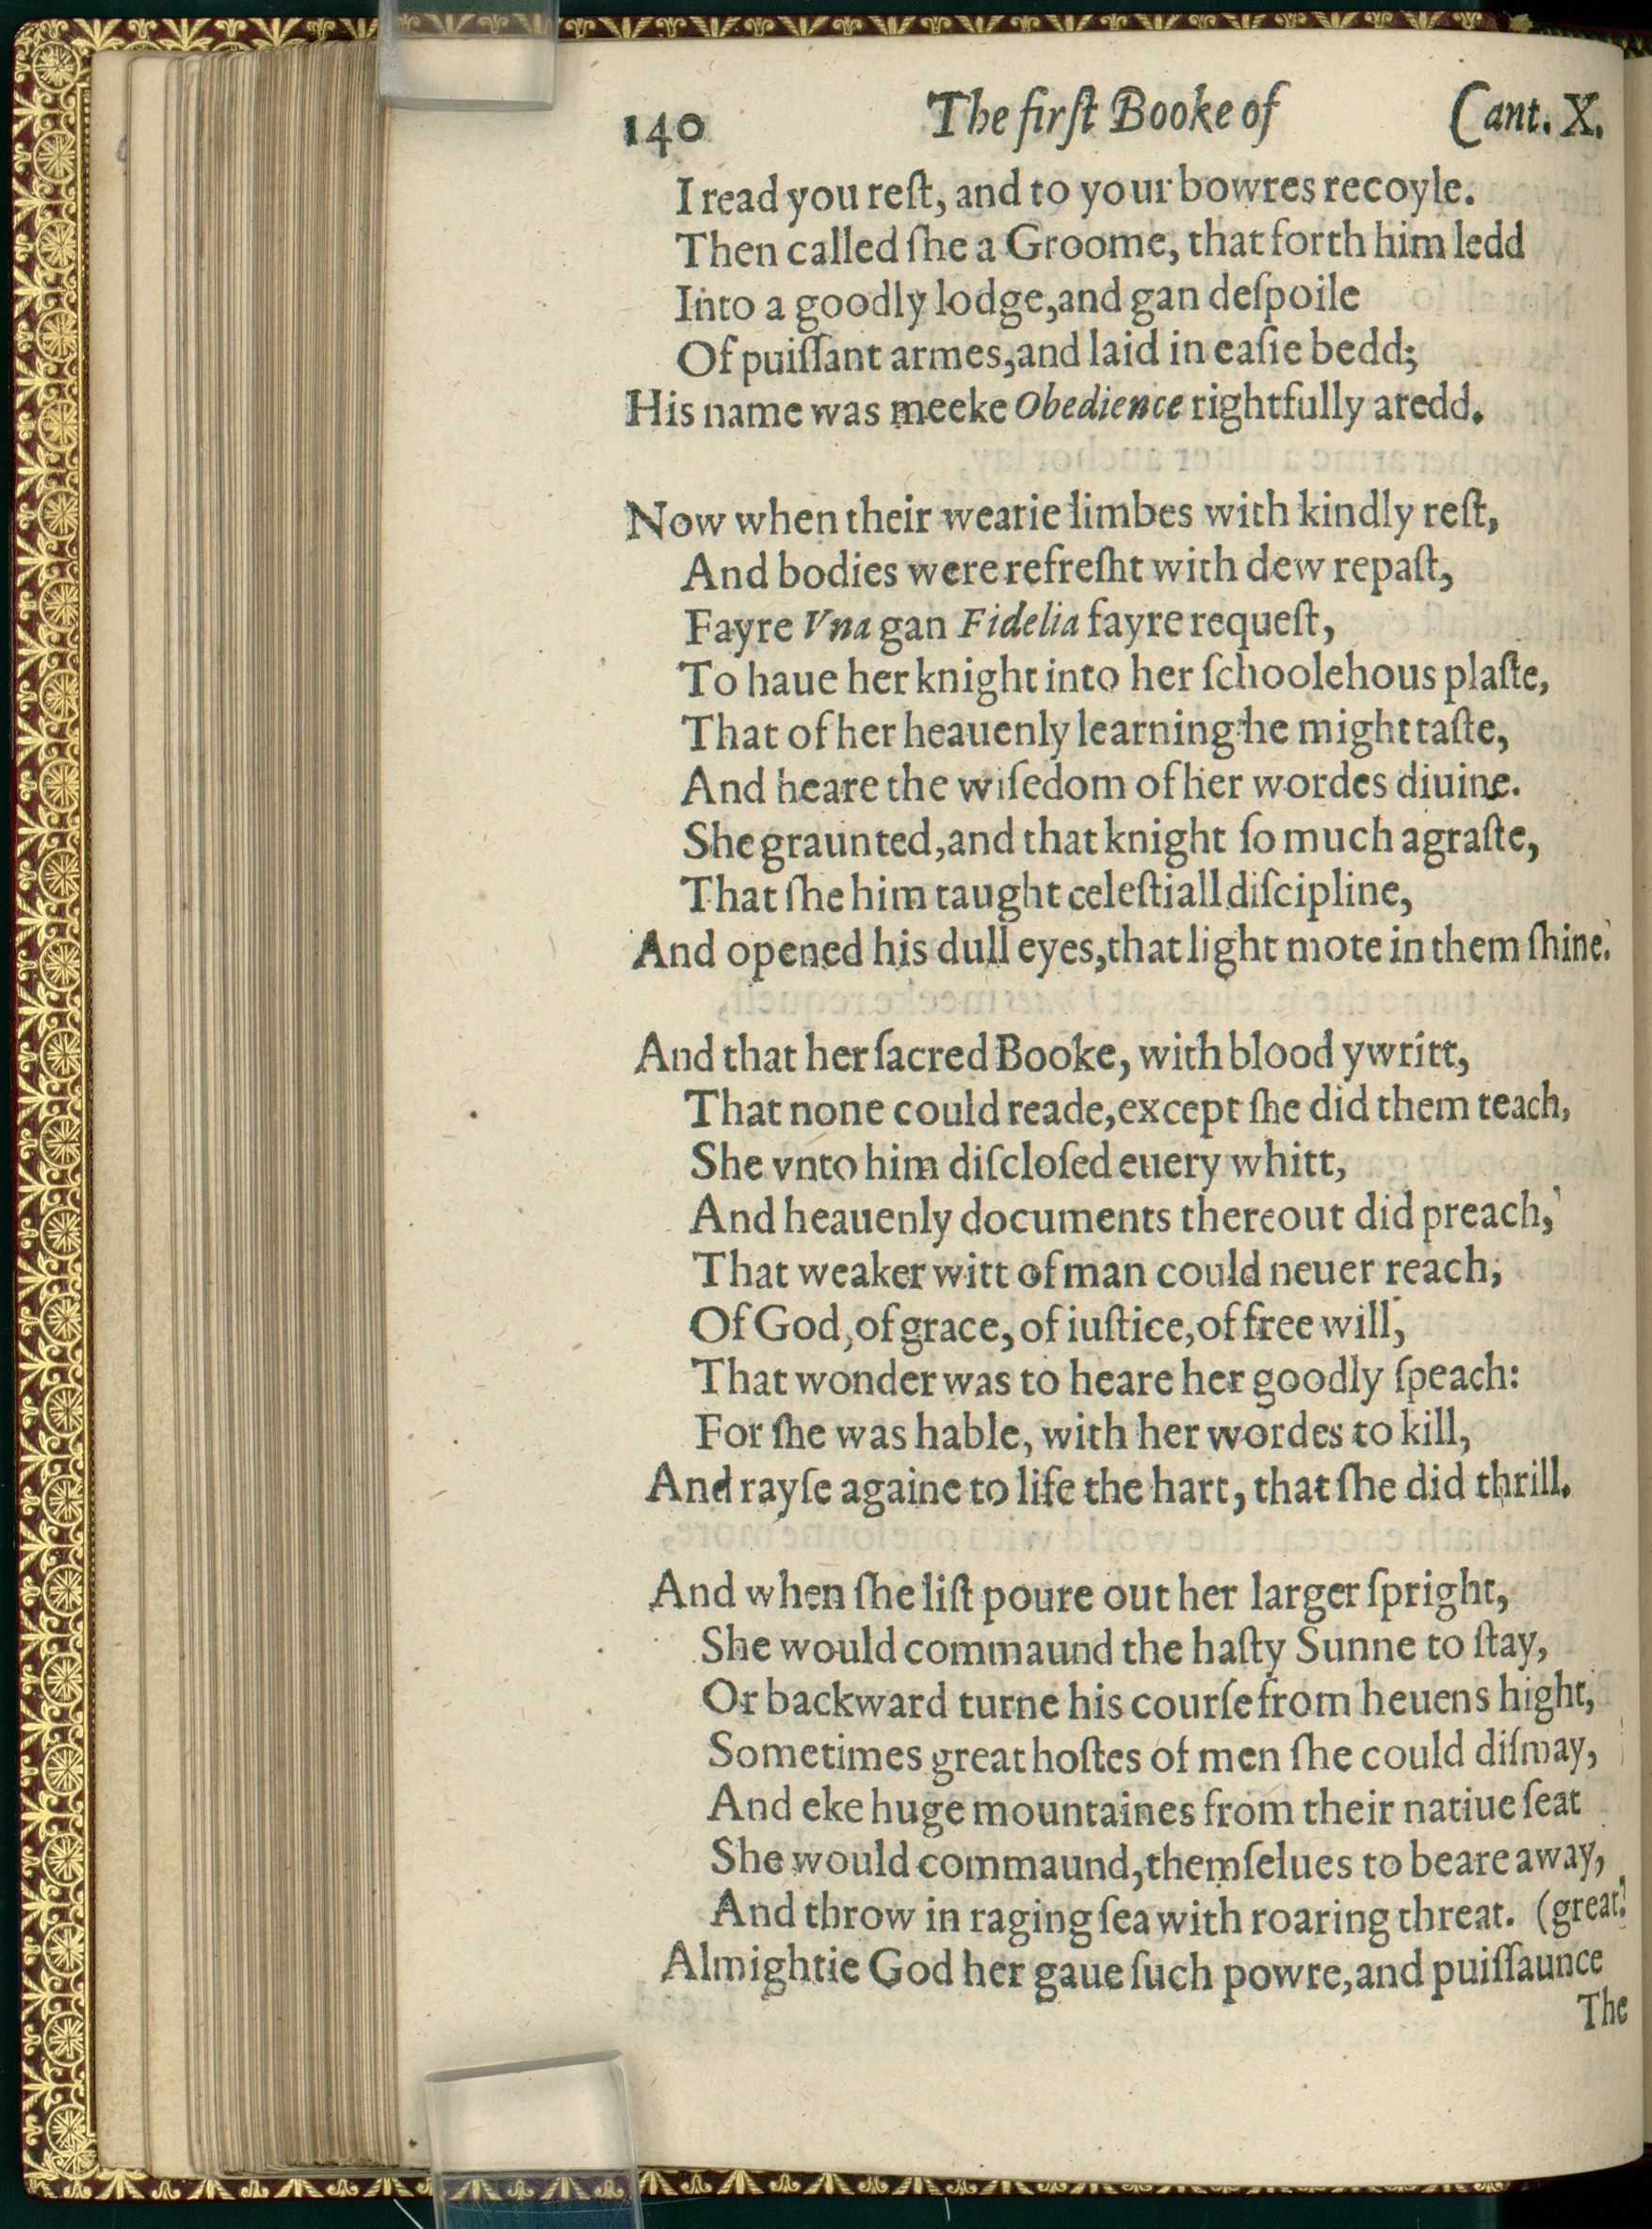 140 The firſt Booke of Cant. X.
I read you reſt, and to your bowres recoyle.
Then called ſhe a Groome, that forth him ledd
Into a goodly lodge, and gan deſpoile
Of puiſſant armes, and laid in eaſie bedd;
His name was meeke Obedience rightfully aredd.
Now when their wearie limbes with kindly reſt,
And bodies were refreſht with dew repaſt,
Fayre Vna gan Fidelia fayre requeſt,
To haue her knight into her ſchoolehous plaſte,
That of her heauenly learning he might taſte,
And heare the wiſedom of her wordes diuine.
She graunted, and that knight ſo much agraſte,
That ſhe him taught celeſtiall diſcipline,
And opened his dull eyes, that light mote in them ſhine.
And that her ſacred Booke, with blood ywritt,
That none could reade, except ſhe did them teach,
She vnto him diſcloſed euery whitt,
And heauenly documents thereout did preach,
That weaker witt of man could neuer reach,
Of God, of grace, of iuſtice, of free will,
That wonder was to heare her goodly ſpeach:
For ſhe was hable, with her wordes to kill,
And rayſe againe to life the hart, that ſhe did thrill.
And when ſhe liſt poure out her larger ſpright,
She would commaund the haſty Sunne to ſtay,
Or backward turne his courſe from heuens hight,
Sometimes great hoſtes of men ſhe could diſmay,
And eke huge mountaines from their natiue ſeat
She would commaund, themſelues to beare away,
And throw in raging ſea with roaring threat. (great.
Almightie God her gaue ſuch powre, and puiſſaunce
The